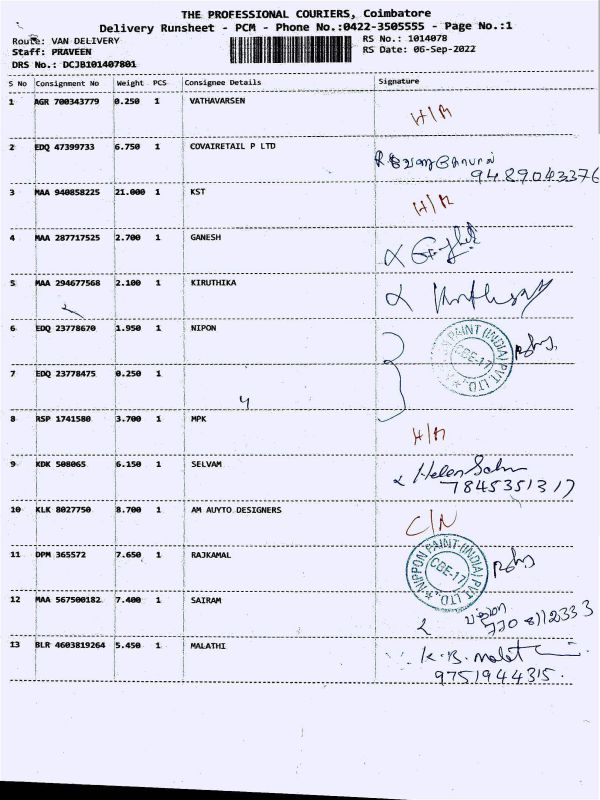 THE PROFESSIONAL COURIERS, Coimbatore
Delivery Runsheet - PCM - Phone No.:0422-3505555 - Page No.:1
Route: VAN DELIVERY
RS No.: 1014078
Staff: PRAVEEN
RS Date: 06-Sep-2022
DRS No.: DCJB101407801
S No Consignment No Weight PCS Consignee Details Signature
1 AGR 700343779 0.250 1 VATHAVARSEN
2 EDQ 47399733 6.750 1 COVAIRETAIL P LTD
9489043376
3 MAA 940858225 21.000 1 KST
4 MAA 287717525 2.700 1 GANESH
5 MAA 294677568 2.100 1 KIRUTHIKA
6 EDQ 23778670 1.950 1 NIPON
PAINT (INDIA) PVT. LTD.
CBE-17
7 EDQ 23778475 0.250 1
8 RSP 1741580 3.700 1 MPK
9 KDK 508065 6.150 1 SELVAM
7845351317
10 KLK 8027750 8.700 1 AM AUYTO DESIGNERS
C/N
11 DPM 365572 7.650 1 RAJKAMAL
NIPPON PAINT (INDIA) PVT. LTD.
CBE-17
12 MAA 567500182 7.400 1 SAIRAM
13 BLR 4603819264 5.450 1 MALATHI
9751944315.